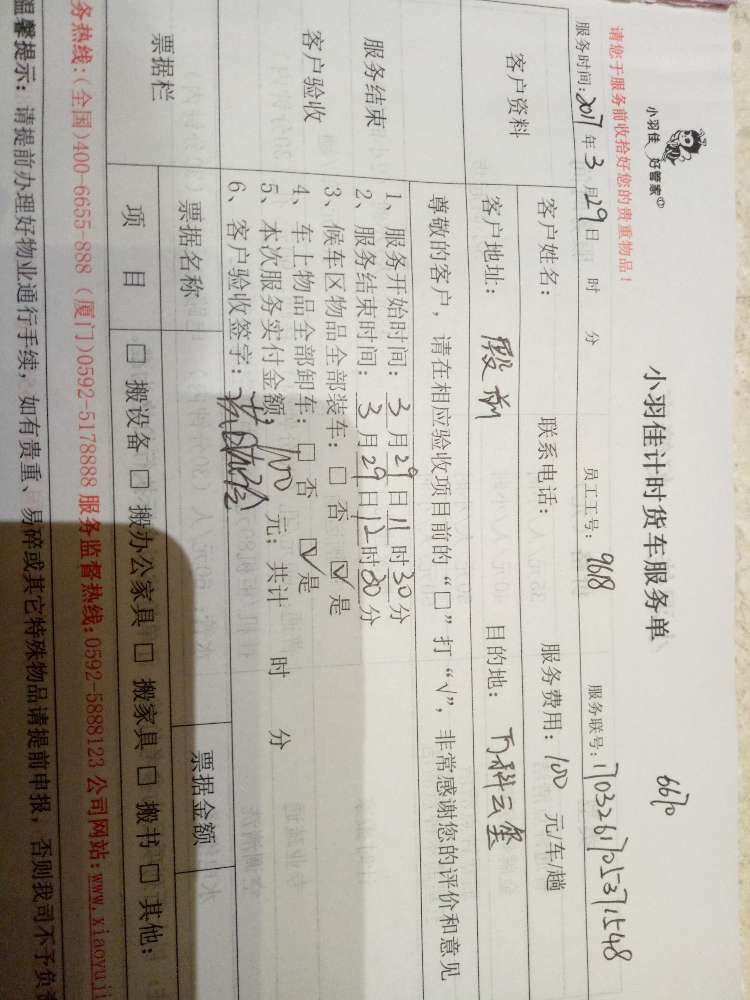 小羽佳 好管家
小羽佳计时货车服务单
6670
请您于服务前收拾好您的贵重物品！
服务时间：2017年3月29日 时 分 员工工号：9618 服务联号：170326170537 1548
客户资料
客户姓名： 联系电话： 服务费用：100 元/车/趟
客户地址：殿前 目的地：万科云玺
尊敬的客户，请在相应验收项目前的“□”打“√”，非常感谢您的评价和意见
服务结束
客户验收
1、服务开始时间：3月29日11时30分
2、服务结束时间：3月29日12时30分
3、候车区物品全部装车：□ 否 ☑ 是
4、车上物品全部卸车：□ 否 ☑ 是
5、本次服务实付金额：100 元；共计 时 分
6、客户验收签字：
票据栏
票据名称 票据金额
项 目 □ 搬设备 □ 搬办公家具 □ 搬家具 □ 搬书 □ 其他：
务热线：(全国)400-6655-888（厦门)0592-5178888 服务监督热线:0592-5888123 公司网站:www.xiaoyuji
温馨提示：请提前办理好物业通行手续，如有贵重、易碎或其它特殊物品请提前申报，否则我司不予负责